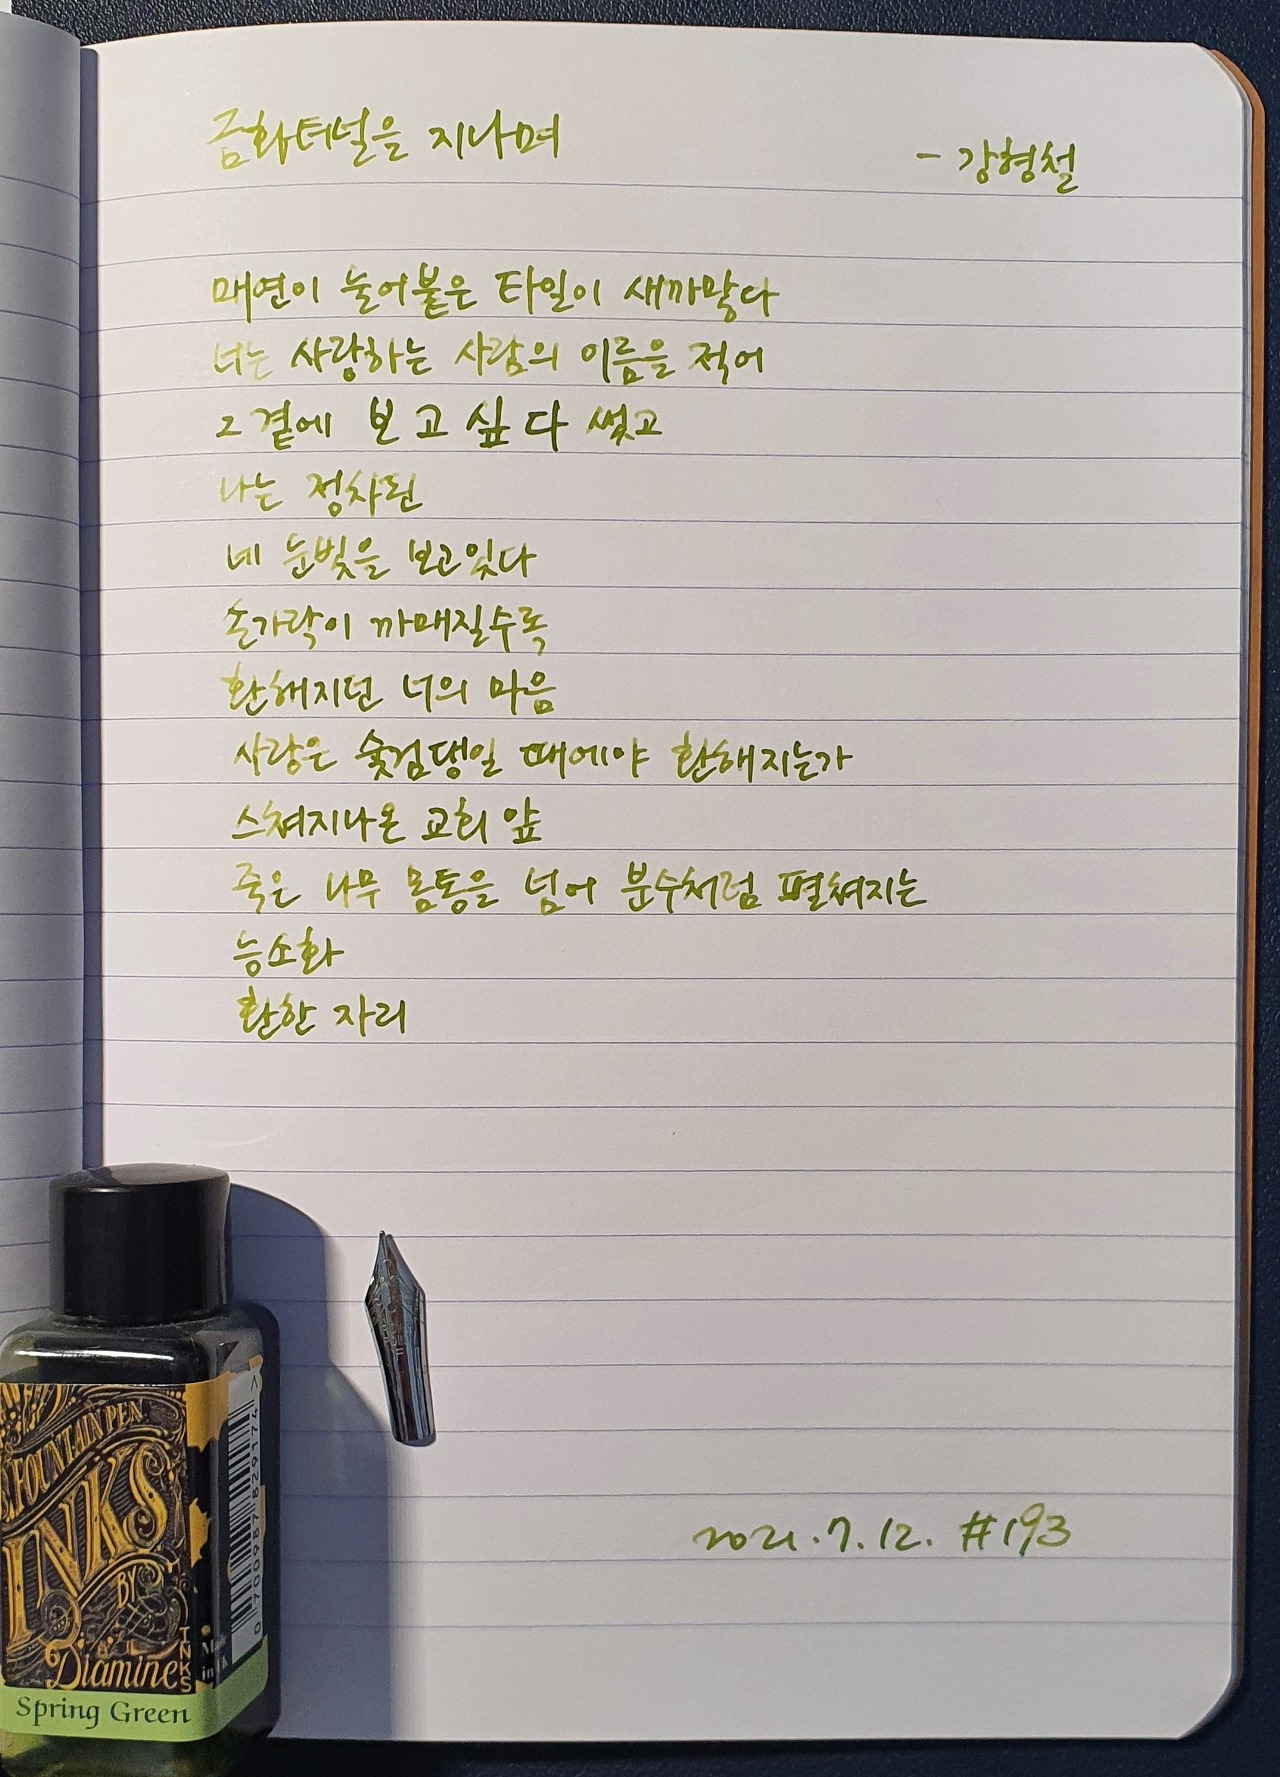 금화터널을 지나며
- 강형철
매연이 눌어붙은 타일이 새까맣다
너는 사랑하는 사람의 이름을 적어
그 곁에 보고싶다 썼고
나는 정차된
네 눈빛을 보고있다
손가락이 까매질수록
환해지던 너의 마음
사랑은 숯검댕일 때에야 환해지는가
스쳐지나온 교회 앞
죽은 나무 몸통을 넘어 분수처럼 펼쳐지는
능소화
환한 자리
2021.7.12. #193
FOUNTAIN PEN
INKS
BY
Diamine
INKS
Made
in UK
Spring Green